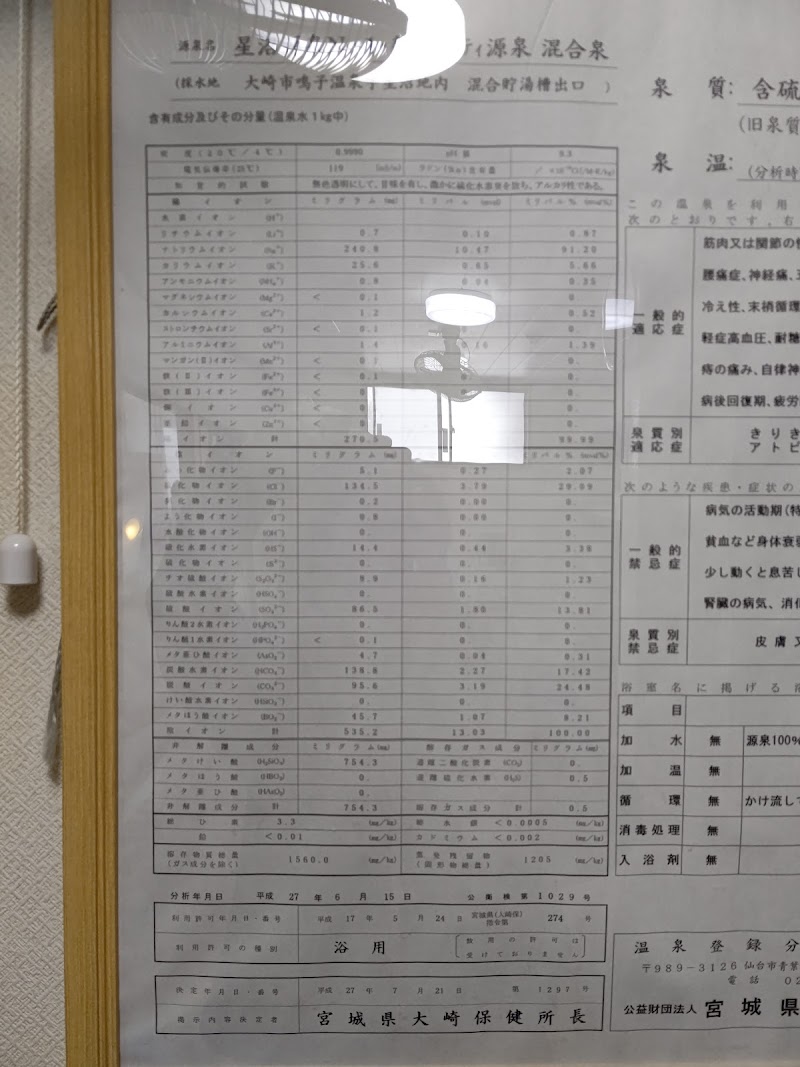 源泉名 星沼 ティ源泉 混合泉
(採水地 大崎市鳴子温泉字星沼地内 混合貯湯槽出口 )
含有成分及びその分量(温泉水1kg中)
密度(20℃/4℃) 0.9990 pH値 9.3
電気伝導率(25℃) 119 (mS/m) ラドン(Rn)含有量
知覚的試験 無色透明にして、苦味を有し、微かに硫化水素臭を放ち、アルカリ性である。
陽イオン ミリグラム(mg) ミリバル(mval) ミリバル%(mval%)
水素イオン (H⁺)
リチウムイオン (Li⁺) 0.7 0.10 0.87
ナトリウムイオン (Na⁺) 240.8 10.47 91.20
カリウムイオン (K⁺) 25.6 0.65 5.66
アンモニウムイオン (NH₄⁺) 0.8 0.04 0.35
マグネシウムイオン (Mg²⁺) < 0.1 0.
カルシウムイオン (Ca²⁺) 1.2 0.52
ストロンチウムイオン (Sr²⁺) < 0.1 0.
アルミニウムイオン (Al³⁺) 1.4 0.16 1.39
マンガン(Ⅱ)イオン (Mn²⁺) < 0.1 0.
鉄(Ⅱ)イオン (Fe²⁺) < 0.1 0.
鉄(Ⅲ)イオン (Fe³⁺) < 0. 0.
銅イオン (Cu²⁺) < 0. 0.
亜鉛イオン (Zn²⁺) < 0. 0.
陽イオン計 270.5 99.99
イオン ミリグラム(mg) ミリバル%(mval%)
ふっ化物イオン (F⁻) 5.1 0.27 2.07
塩化物イオン (Cl⁻) 134.5 3.79 29.09
臭化物イオン (Br⁻) 0.2 0.00 0.
よう化物イオン (I⁻) 0.8 0.00 0.
水酸化物イオン (OH⁻) 0. 0. 0.
硫化水素イオン (HS⁻) 14.4 0.44 3.38
硫化物イオン (S²⁻) 0. 0. 0.
チオ硫酸イオン (S₂O₃²⁻) 8.9 0.16 1.23
硫酸水素イオン (HSO₄⁻) 0. 0. 0.
硫酸イオン (SO₄²⁻) 86.5 1.80 13.81
りん酸2水素イオン (H₂PO₄⁻) 0. 0. 0.
りん酸1水素イオン (HPO₄²⁻) < 0.1 0. 0.
メタ亜ひ酸イオン (AsO₂⁻) 4.7 0.04 0.31
炭酸水素イオン (HCO₃⁻) 138.8 2.27 17.42
炭酸イオン (CO₃²⁻) 95.6 3.19 24.48
けい酸水素イオン (HSiO₃⁻) 0. 0. 0.
メタほう酸イオン (BO₂⁻) 45.7 1.07 8.21
陰イオン計 535.2 13.03 100.00
非解離成分 ミリグラム(mg) 溶存ガス成分 ミリグラム(mg)
メタけい酸 (H₂SiO₃) 754.3 遊離二酸化炭素 (CO₂) 0.
メタほう酸 (HBO₂) 0. 遊離硫化水素 (H₂S) 0.5
メタ亜ひ酸 (HAsO₂) 0.
非解離成分計 754.3 溶存ガス成分計 0.5
総ひ素 3.3 (mg/kg) 総水銀 <0.0005 (mg/kg)
鉛 <0.01 (mg/kg) カドミウム <0.002 (mg/kg)
溶存物質総量(ガス成分を除く) 1560.0 (mg/kg) 蒸発残留物(固形物総量) 1205 (mg/kg)
分析年月日 平成 27 年 6 月 15 日 公衛検第1029号
利用許可年月日・番号 平成 17 年 5 月 24 日 宮城県(大崎保)指令第 274 号
利用許可の種別 浴用 飲用の許可は受けておりません
決定年月日・番号 平成 27 年 7 月 21 日 第 1297 号
掲示内容決定者 宮城県大崎保健所長
泉質: 含硫
(旧泉質
泉温:
(分析時
この温泉を利用
次のとおりです。右
一般的適応症
筋肉又は関節の慢
腰痛症、神経痛、
冷え性、末梢循環
軽症高血圧、耐糖
痔の痛み、自律神
病後回復期、疲労
泉質別適応症
きりき
アトピ
次のような疾患・症状の
一般的禁忌症
病気の活動期(特
貧血など身体衰弱
少し動くと息苦し
腎臓の病気、消化
泉質別禁忌症
皮膚又
浴室名に掲げる浴
項目
加水 無 源泉100%
加温 無
循環 無 かけ流して
消毒処理 無
入浴剤 無
温泉登録分
〒989-3126 仙台市青葉
電話 02
公益財団法人 宮城県